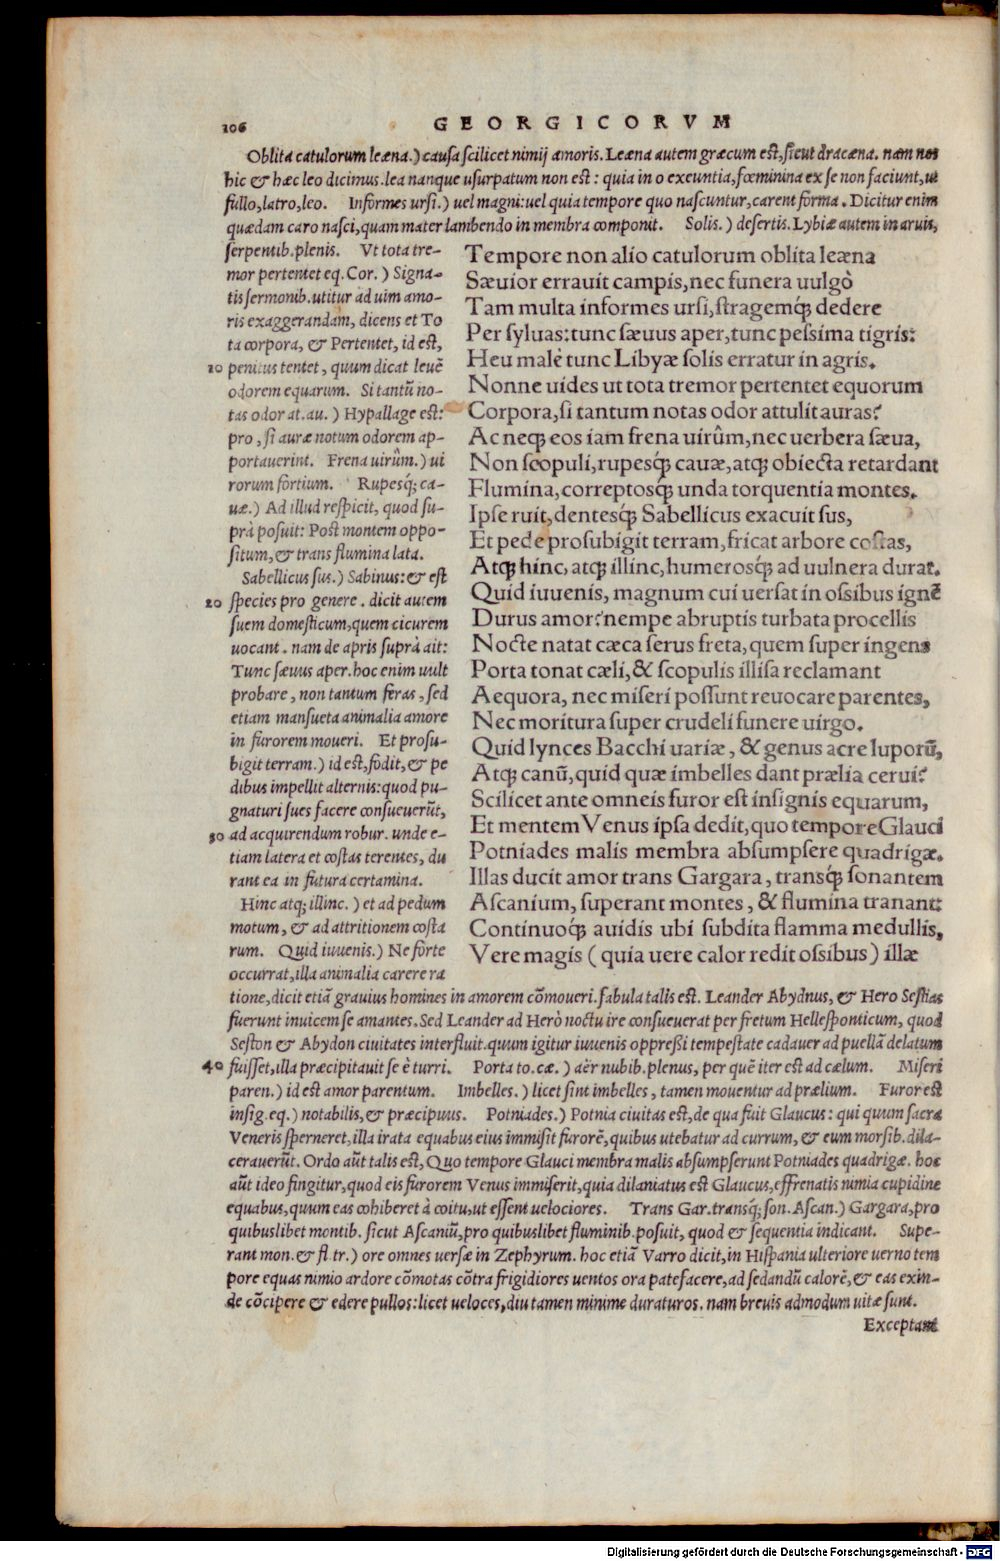 106 GEORGICORVM
Oblita catulorum leæna.) causa scilicet nimij amoris. Leæna autem græcum est, sicut dracæna. nam nos
hic & hæc leo dicimus. lea nanque usurpatum non est: quia in o exeuntia, fœminina ex se non faciunt, ut
fullo, latro, leo. Informes ursi.) uel magni: uel quia tempore quo nascuntur, carent forma. Dicitur enim
quædam caro nasci, quam mater lambendo in membra componit. Solis.) desertis. Lybiæ autem in aruis,
serpentib. plenis. Vt tota tre-
mor pertentet eq. Cor.) Signa-
tis sermonib. utitur ad uim amo-
ris exaggerandam, dicens et To
ta corpora, & Pertentet, id est,
10 penitus tentet, quum dicat leuē
odorem equarum. Si tantū no-
tas odor at. au.) Hypallage est:
pro, si auræ notum odorem ap-
portauerint. Frena uirûm.) ui
rorum fortium. Rupesq; ca-
uæ.) Ad illud respicit, quod su-
prà posuit: Post montem oppo-
situm, & trans flumina lata.
Sabellicus sus.) Sabinus: & est
20 species pro genere. dicit autem
suem domesticum, quem cicurem
uocant. nam de apris suprà ait:
Tunc sæuus aper. hoc enim uult
probare, non tantum feras, sed
etiam mansueta animalia amore
in furorem moueri. Et prosu-
bigit terram.) id est, fodit, & pe
dibus impellit alternis: quod pu-
gnaturi sues facere consueuerūt,
30 ad acquirendum robur. unde e-
tiam latera et costas terentes, du
rant ea in futura certamina.
Hinc atq; illinc.) et ad pedum
motum, & ad attritionem costa
rum. Quid iuuenis.) Ne forte
occurrat, illa animalia carere ra
Tempore non alio catulorum oblita leæna
Sæuior errauit campis, nec funera uulgò
Tam multa informes ursi, stragemq́; dedere
Per syluas: tunc sæuus aper, tunc pessima tigris:
Heu malè tunc Libyæ solis erratur in agris.
Nonne uides ut tota tremor pertentet equorum
Corpora, si tantum notas odor attulit auras?
Ac neq; eos iam frena uirûm, nec uerbera sæua,
Non scopuli, rupesq́; cauæ, atq; obiecta retardant
Flumina, correptosq́; unda torquentia montes.
Ipse ruit, dentesq́; Sabellicus exacuit sus,
Et pede prosubigit terram, fricat arbore costas,
Atq; hinc, atq; illinc, humerosq́; ad uulnera durat.
Quid iuuenis, magnum cui uersat in ossibus ignē
Durus amor? nempe abruptis turbata procellis
Nocte natat cæca serus freta, quem super ingens
Porta tonat cæli, & scopulis illisa reclamant
Aequora, nec miseri possunt reuocare parentes,
Nec moritura super crudeli funere uirgo.
Quid lynces Bacchi uariæ, & genus acre luporū,
Atq; canū, quid quæ imbelles dant prælia cerui?
Scilicet ante omneis furor est insignis equarum,
Et mentem Venus ipsa dedit, quo tempore Glauci
Potniades malis membra absumpsere quadrigæ.
Illas ducit amor trans Gargara, transq́; sonantem
Ascanium, superant montes, & flumina tranant:
Continuoq́; auidis ubi subdita flamma medullis,
Vere magis ( quia uere calor redit ossibus ) illæ
tione, dicit etiā grauius homines in amorem cōmoueri. fabula talis est. Leander Abydnus, & Hero Sestias
fuerunt inuicem se amantes. Sed Leander ad Herò noctu ire consueuerat per fretum Hellesponticum, quod
Seston & Abydon ciuitates interfluit. quum igitur iuuenis oppreßi tempestate cadauer ad puellā delatum
40 fuisset, illa præcipitauit se è turri. Porta to. cæ.) aër nubib. plenus, per quē iter est ad cælum. Miseri
paren.) id est amor parentum. Imbelles.) licet sint imbelles, tamen mouentur ad prælium. Furor est
insig. eq.) notabilis, & præcipuus. Potniades.) Potnia ciuitas est, de qua fuit Glaucus: qui quum sacra
Veneris sperneret, illa irata equabus eius immisit furorē, quibus utebatur ad currum, & eum morsib. dila-
cerauerūt. Ordo aūt talis est, Quo tempore Glauci membra malis absumpserunt Potniades quadrigæ. hoc
aūt ideo fingitur, quod eis furorem Venus immiserit, quia dilaniatus est Glaucus, effrenatis nimia cupidine
equabus, quum eas cohiberet à coitu, ut essent uelociores. Trans Gar. transq́; son. Ascan.) Gargara, pro
quibuslibet montib. sicut Ascaniū, pro quibuslibet fluminib. posuit, quod & sequentia indicant. Supe-
rant mon. & fl. tr.) ore omnes uersæ in Zephyrum. hoc etiā Varro dicit, in Hispania ulteriore uerno tem
pore equas nimio ardore cōmotas cōtra frigidiores uentos ora patefacere, ad sedandū calorē, & eas exin-
de cōcipere & edere pullos: licet ueloces, diu tamen minime duraturos. nam breuis admodum uitæ sunt.
Exceptant
Digitalisierung gefördert durch die Deutsche Forschungsgemeinschaft - DFG